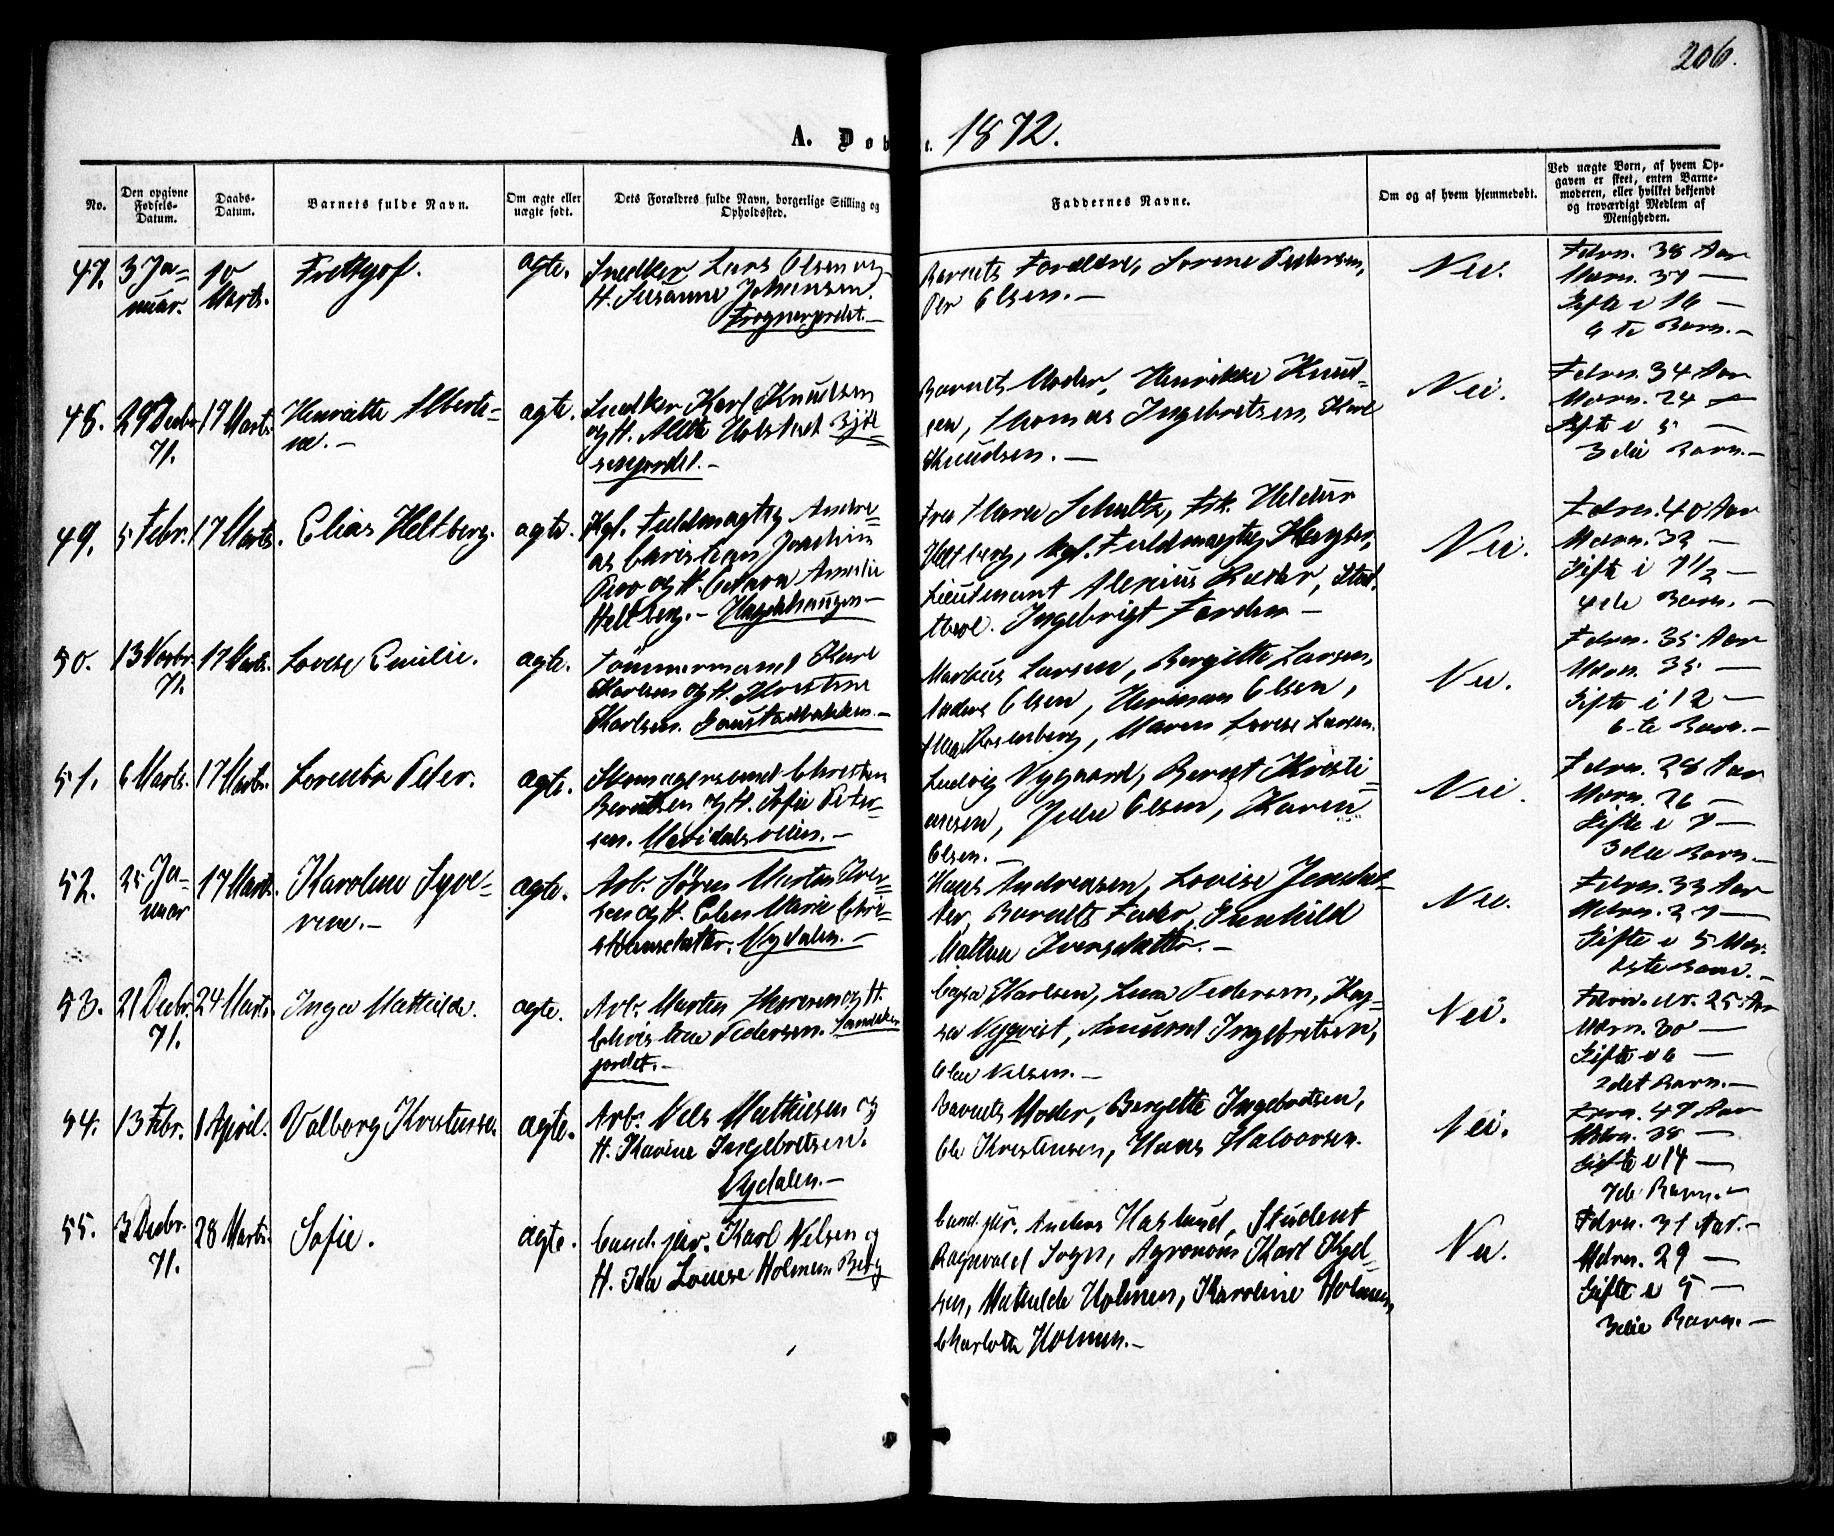 206.
A. Døbte. 1872.
No.
Den opgivne Fødsels-Datum.
Daabs-Datum.
Barnets fulde Navn.
Om ægte eller uægte født.
Dets Forældres fulde Navn, borgerlige Stilling og Opholdssted.
Faddernes Navne.
Om og af hvem hjemmedøbt.
Ved uægte Børn, af hvem Opgaven er skeet, enten Barnemoderen, eller hvilket bekjendt og troværdigt Medlem af Menigheden.
47. 3 Januar. 10 Marts. Frithjof. ægte.
Snedker Lars Olsen og
H. Susanne Johansen.
Frognerjordet.
Barnets Forældre, Sorine Pedersen,
Per Olsen.
Nei.
Fdrn. 38 Aar
Mdrn. 37
Gifte i 16
6te Barn.
48. 29 Decbr 71. 17 Marts. Henriette Albertine. ægte.
Snedker Karl Knudsen
og H. Alette Holstad Bjølsenjordet.
Barnets Moder, Henrikke Knudsen, Thomas Ingebretsen, Karl
Knudsen.
Nei.
Fdrn. 34 Aar
Mdrn. 24
Gifte i 5
3die Barn.
49. 5 Febr. 17 Marts. Elias Heltberg. ægte.
Kgl. Fuldmægtig Andreas Christian Joachim
og H. Amalie
Heltberg. Hægdehaugen
Fru Marie Schultz, Frk.
Heltberg, kgl. Fuldmægtig
Lieutenant Alexius Ræder, Stud.
theol. Ingebrigt
Nei.
Fdrn. 40 Aar
Mdrn. 32
Gifte i 7 1/2
4de Barn.
50. 13 Novbr. 71. 17 Marts. Lovise Emilie. ægte.
Tømmermand Karl
Karlsen og H. Kristine
Karlsen. Gaustadbakken.
Markus Larsen, Bergitte Larsen,
Anders Olsen, Herman Olsen,
Rosenberg, Maren Lovise Larsen.
Nei.
Fdrn. 35 Aar
Mdrn. 35
Gifte i 12
6-te Barn.
51. 6 Marts. 17 Marts. Lorentz Peter. ægte.
Skomagersvend Christen
Berntsen og H. Sofie Petersen. Maridalsveien.
Ludvig Nygaard, Bernt Kristiansen, Olsen, Karen
Olsen.
Nei.
Fdrn. 28 Aar
Mdrn. 26
Gifte i 7
3die Barn.
52. 25 Januar 17 Marts. Karoline Syverine. ægte.
Arb. Søren Martin Iversen og H. Elen Marie Christiansdatter. Nydalen.
Hans Andreasen, Lovise Jensdatter, Barnets Fader, Gunhild
Mathea Iversdatter.
Nei.
Fdrn. 33 Aar
Mdrn. 27
Gifte i 5 Mdr.
1ste Barn.
53. 21 Decbr. 71. 24 Marts. Inga Mathilde. ægte.
Arb. Martin Thoresen og H.
Christine Pedersen. Sandakerjordet.
Karlsen, Lina Pedersen, Kaysa Nyqvist, Amund Ingebretsen,
Ole Nilsen.
Nei.
Fdrn. 25 Aar
Mdrn. 30
Gifte i 6
2det Barn.
54. 13 Febr. 1 April. Valborg Kristense. ægte.
Arb. Nels Mathiesen og
H. Karine Ingebretsen.
Nydalen.
Barnets Moder, Bergette Ingebretsen,
Ole Kristensen, Hans Halvorsen.
Nei.
Fdrn. 47 Aar
Mdrn. 38
Gifte i 14
7de Barn.
55. 3 Decbr. 71. 28 Marts. Sofie. ægte.
Cand. jur. Karl Nilsen og
H. Ida Louise Holmen. Berg
Cand. jur. Anders Haslund, Student
Ragnvald Sogn, Agronom Karl Kjelsen, Mathilde Holmen, Karoline Holmen,
Charlotte Holmen.
Nei.
Fdrn. 31 Aar.
Mdrn. 29
Gifte i 5
3die Barn.